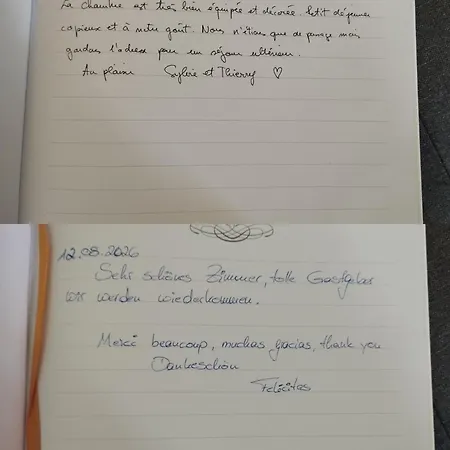 La chambre est très bien équipée et décorée. Petit déjeuner
copieux et à notre goût. Nous n'étions que de passage mais
gardons l'adresse pour un séjour ultérieur.
Au plaisir Sylvie et Thierry ♡
12.08.2026
Sehr schönes Zimmer, tolle Gastgeber
wir werden wiederkommen.
Merci beaucoup, muchas gracias, thank you
Dankeschön
Felicitas